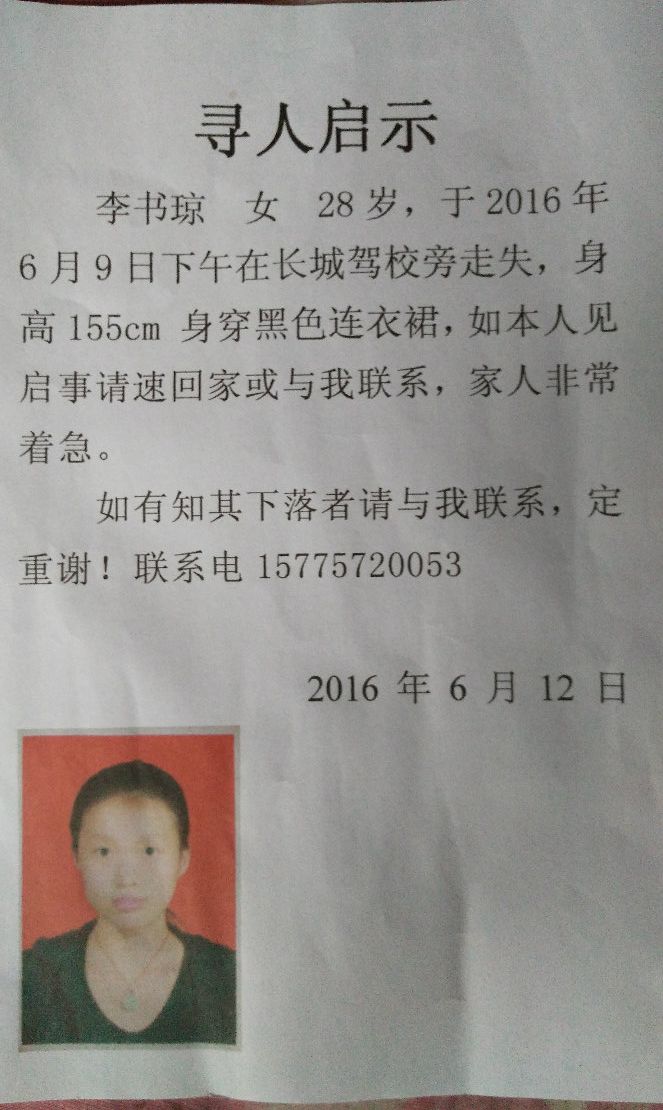 寻人启示
李书琼 女 28岁，于2016年
6月9日下午在长城驾校旁走失，身
高155cm 身穿黑色连衣裙，如本人见
启事请速回家或与我联系，家人非常
着急。
如有知其下落者请与我联系，定
重谢！联系电15775720053
2016 年 6 月 12 日